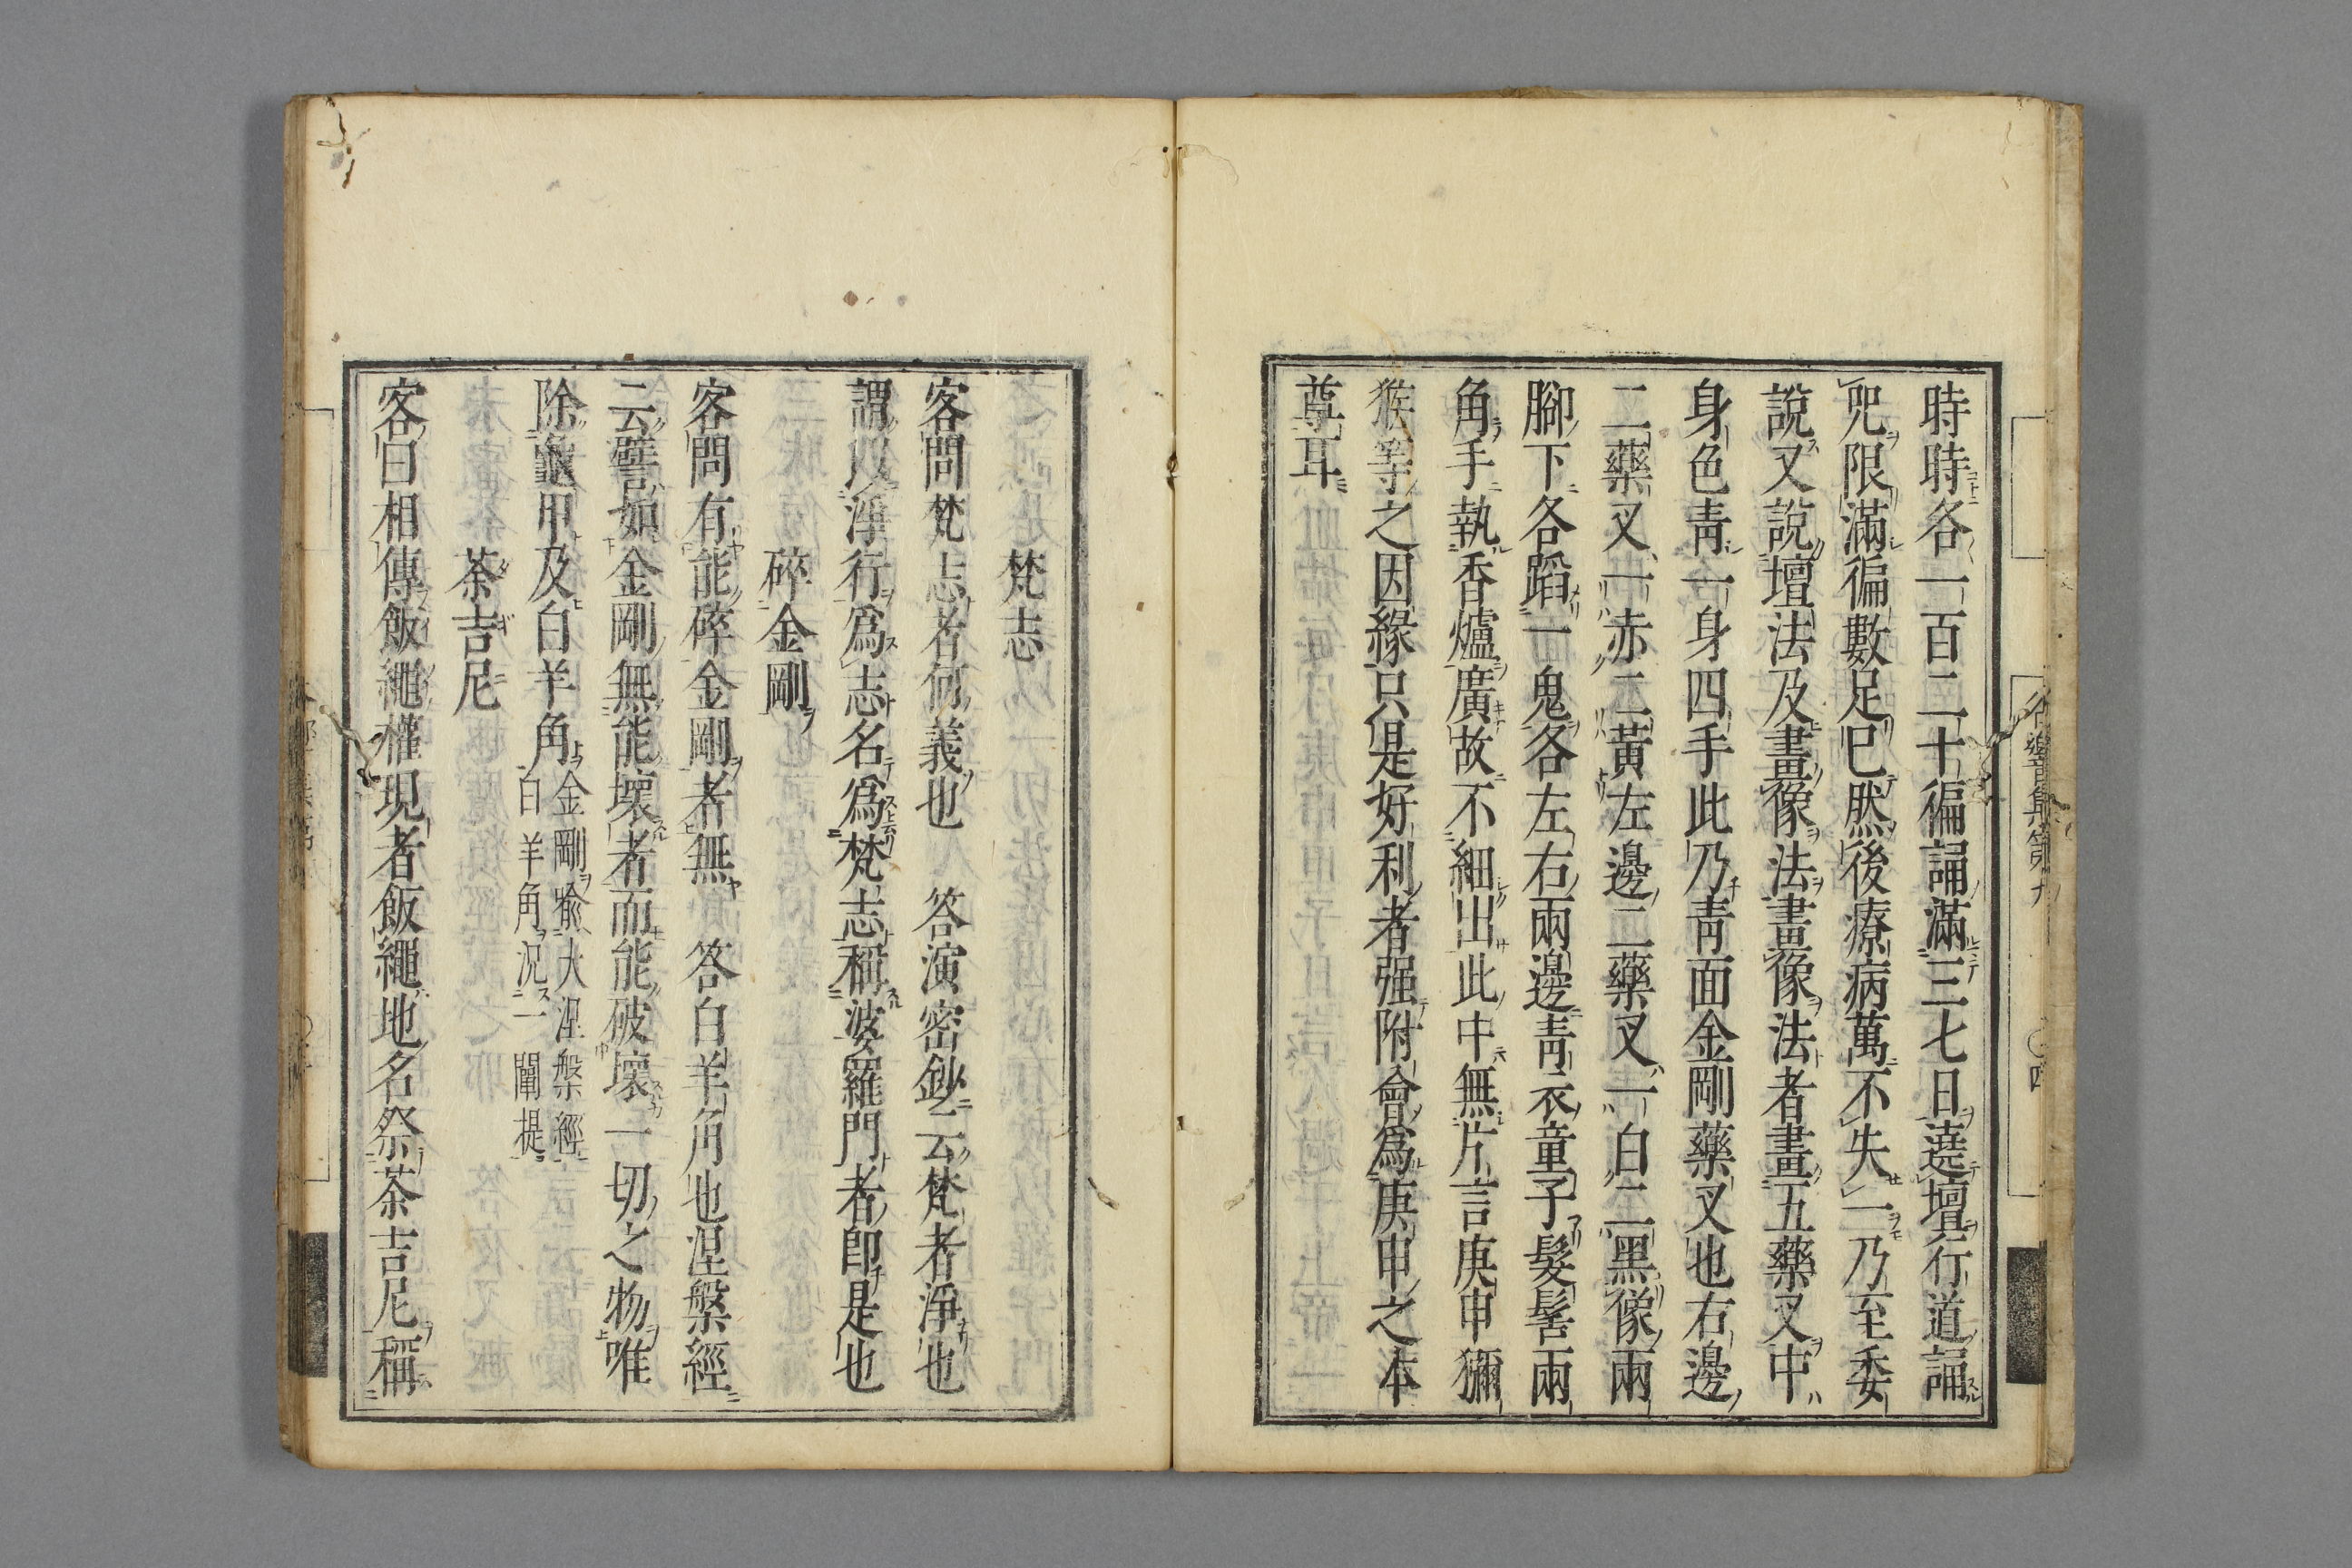 時時各一百二十徧誦滿三七日遶壇行道誦
呪限滿徧數足已然後療病萬不失一乃至委
說又說壇法及畫像法畫像法者畫五藥叉中
身色靑一身四手此乃靑面金剛藥叉也右邊
二藥叉一赤二黃左邊二藥叉一白二黑像兩
腳下各蹈一鬼各左右兩邊靑衣童子髮髻兩
角手執香爐廣故不細出此中無片言庚申獼
猴等之因緣只是好利者强附會爲庚申之本
尊耳
梵志
客問梵志者何義也　答演密鈔云梵者淨也
謂以淨行爲志名爲梵志稱婆羅門者卽是也
碎金剛
客問有能碎金剛者無　答白羊角也涅槃經
云譬如金剛無能壞者而能破壞一切之物唯
除龜甲及白羊角金剛喩大涅槃經
白羊角況一闡提
荼吉尼
客曰相傳飯繩權現者飯繩地名祭荼吉尼稱